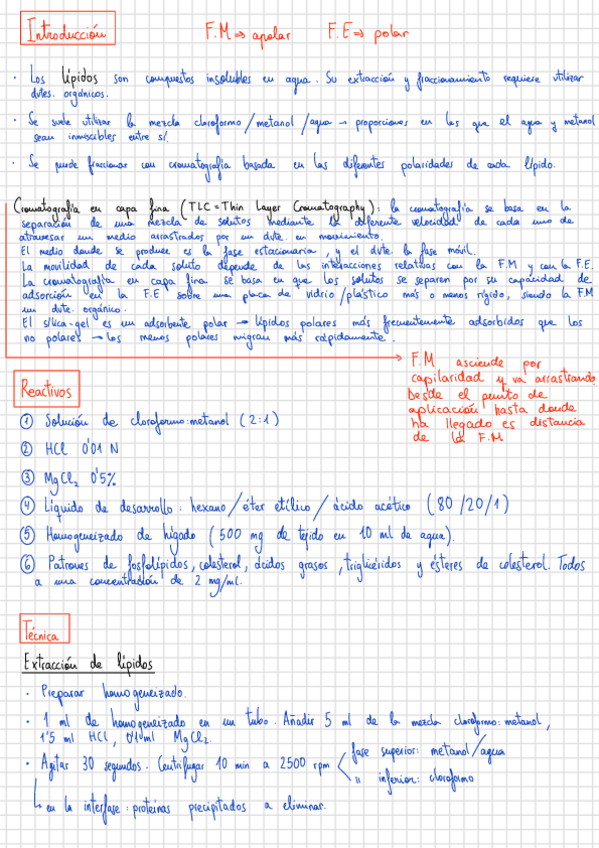 Introducción
F.M ⇒ apolar F.E ⇒ polar
· Los lípidos son compuestos insolubles en agua. Su extracción y fraccionamiento requiere utilizar
dvtes. orgánicos.
· Se suele utilizar la mezcla cloroformo/metanol/agua → proporciones en las que el agua y metanol
sean inmiscibles entre sí.
· Se puede fraccionar con cromatografía basada en las diferentes polaridades de cada lípido.
Cromatografía en capa fina (TLC = Thin Layer Cromatography): la cromatografía se basa en la
separación de una mezcla de solutos mediante la diferente velocidad de cada uno de
atravesar un medio arrastrados por un dvte. en movimiento.
El medio donde se produce es la fase estacionaria, y el dvte. la fase móvil.
La movilidad de cada soluto depende de las interacciones relativas con la F.M y con la F.E.
La cromatografía en capa fina se basa en que los solutos se separen por su capacidad de
adsorción en la F.E sobre una placa de vidrio/plástico más o menos rígido, siendo la F.M
un dvte. orgánico.
El sílica-gel es un adsorbente polar → lípidos polares más frecuentemente adsorbidos que los
no polares → los menos polares migran más rápidamente.
→ F.M asciende por
capilaridad y va arrastrando.
Desde el punto de
aplicación hasta donde
ha llegado es distancia
de la F.M
Reactivos
① Solución de cloroformo:metanol (2:1)
② HCl 0'01 N
③ MgCl₂ 0'5%
④ Líquido de desarrollo: hexano/éter etílico/ácido acético (80/20/1)
⑤ Homogeneizado de hígado (500 mg de tejido en 10 ml de agua).
⑥ Patrones de fosfolípidos, colesterol, ácidos grasos, triglicéridos y ésteres de colesterol. Todos
a una concentración de 2 mg/ml.
Técnica
Extracción de lípidos
· Preparar homogeneizado.
· 1 ml de homogeneizado en un tubo. Añadir 5 ml de la mezcla cloroformo:metanol,
1'5 ml HCl, 0'10ml MgCl₂.
· Agitar 30 segundos. Centrifugar 10 min a 2500 rpm < fase superior: metanol/agua
" inferior: cloroformo
↳ en la interfase: proteínas precipitados a eliminar.